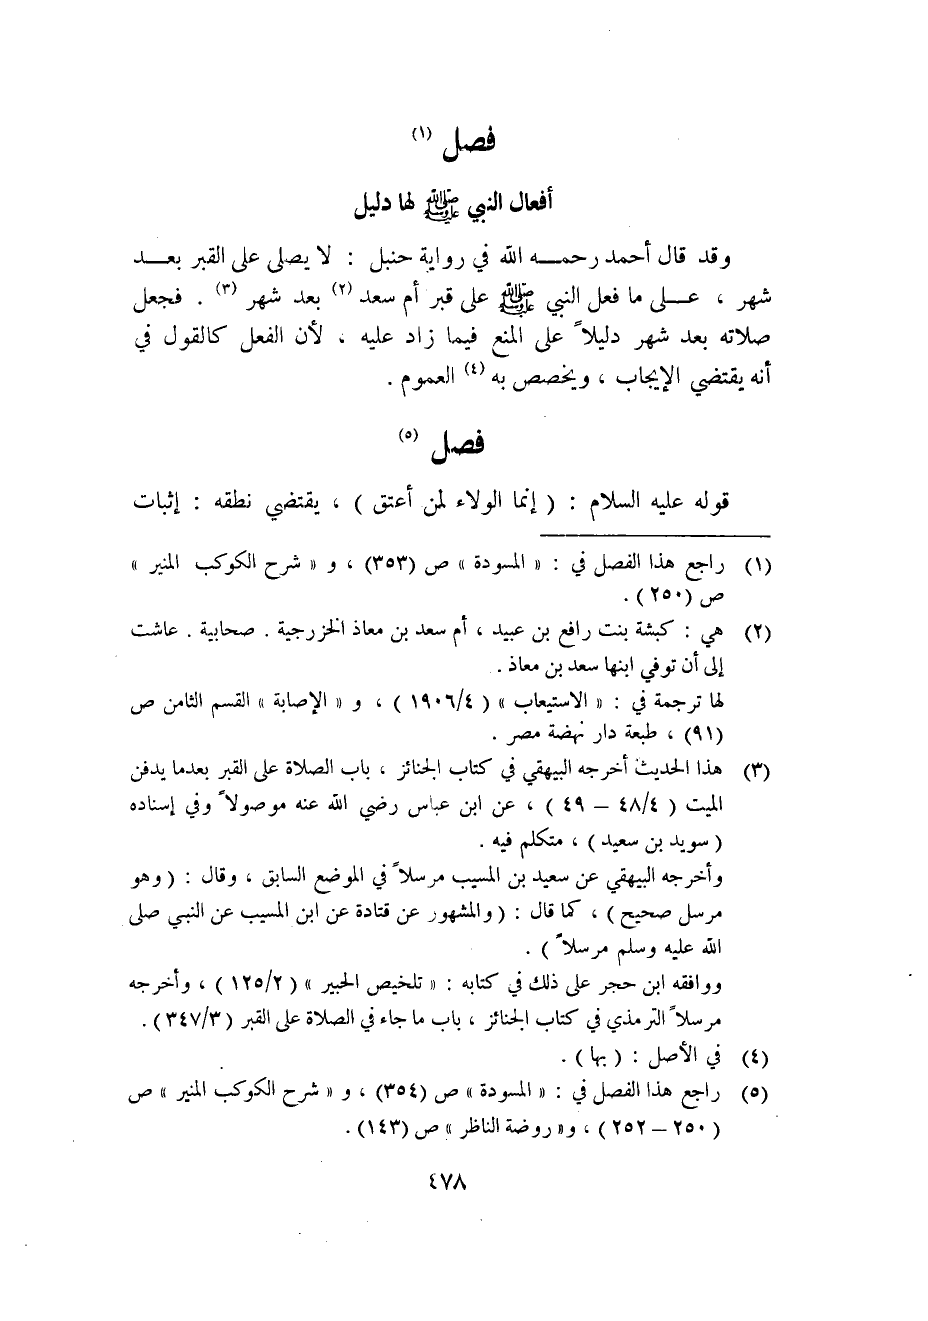 فصل (١)
أفعال النبي ﷺ لها دليل
وقد قال أحمد رحمـــه الله في رواية حنبل : لا يصلى على القبر بعـــد
شهر ، عـــلى ما فعل النبي ﷺ على قبر أم سعد (٢) بعد شهر (٣) . فجعل
صلاته بعد شهر دليلاً على المنع فيما زاد عليه ، لأن الفعل كالقول في
أنه يقتضي الإيجاب ، ويخصص به (٤) العموم .
فصل (٥)
قوله عليه السلام : ( إنما الولاء لمن أعتق ) ، يقتضي نطقه : إثبات
(١) راجع هذا الفصل في : « المسودة » ص (٣٥٣) ، و « شرح الكوكب المنير »
ص (٢٥٠) .
(٢) هي : كبشة بنت رافع بن عبيد ، أم سعد بن معاذ الخزرجية . صحابية . عاشت
إلى أن توفي ابنها سعد بن معاذ .
لها ترجمة في : « الاستيعاب » ( ١٩٠٦/٤ ) ، و « الإصابة » القسم الثامن ص
(٩١) ، طبعة دار نهضة مصر .
(٣) هذا الحديث أخرجه البيهقي في كتاب الجنائز ، باب الصلاة على القبر بعدما يدفن
الميت ( ٤٨/٤ – ٤٩ ) ، عن ابن عباس رضي الله عنه موصولاً وفي إسناده
( سويد بن سعيد ) ، متكلم فيه .
وأخرجه البيهقي عن سعيد بن المسيب مرسلاً في الموضع السابق ، وقال : ( وهو
مرسل صحيح ) ، كما قال : ( والمشهور عن قتادة عن ابن المسيب عن النبي صلى
الله عليه وسلم مرسلاً ) .
ووافقه ابن حجر على ذلك في كتابه : « تلخيص الحبير » ( ١٢٥/٢ ) ، وأخرجه
مرسلاً الترمذي في كتاب الجنائز ، باب ما جاء في الصلاة على القبر ( ٣٤٧/٣ ) .
(٤) في الأصل : ( بها ) .
(٥) راجع هذا الفصل في : « المسودة » ص (٣٥٤) ، و « شرح الكوكب المنير » ص
( ٢٥٠ – ٢٥٢ ) ، و« روضة الناظر » ص (١٤٣) .
٤٧٨